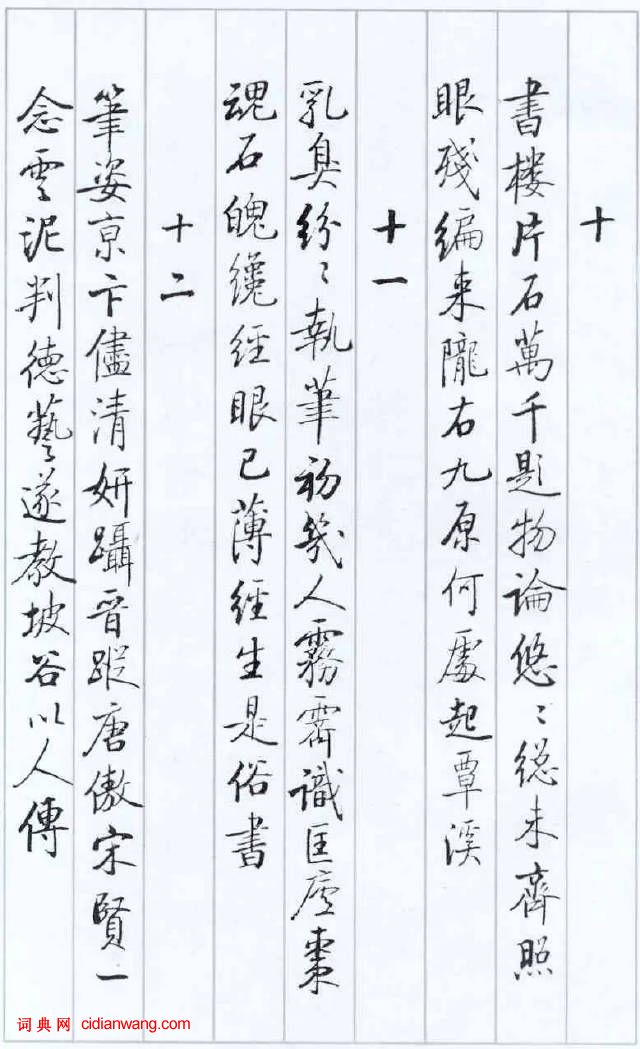 十
書楼片石萬千題物論悠〻緫未齊照
眼殘編来隴右九原何處起覃溪
十一
乳臭紛〻執筆初幾人霧霽識匡廬棗
魂石魄纔經眼已薄經生是俗書
十二
筆姿京卞儘清妍躡晉蹤唐傲宋賢一
念雲泥判德藝遂教坡谷以人傳
词典网 cidianwang.com